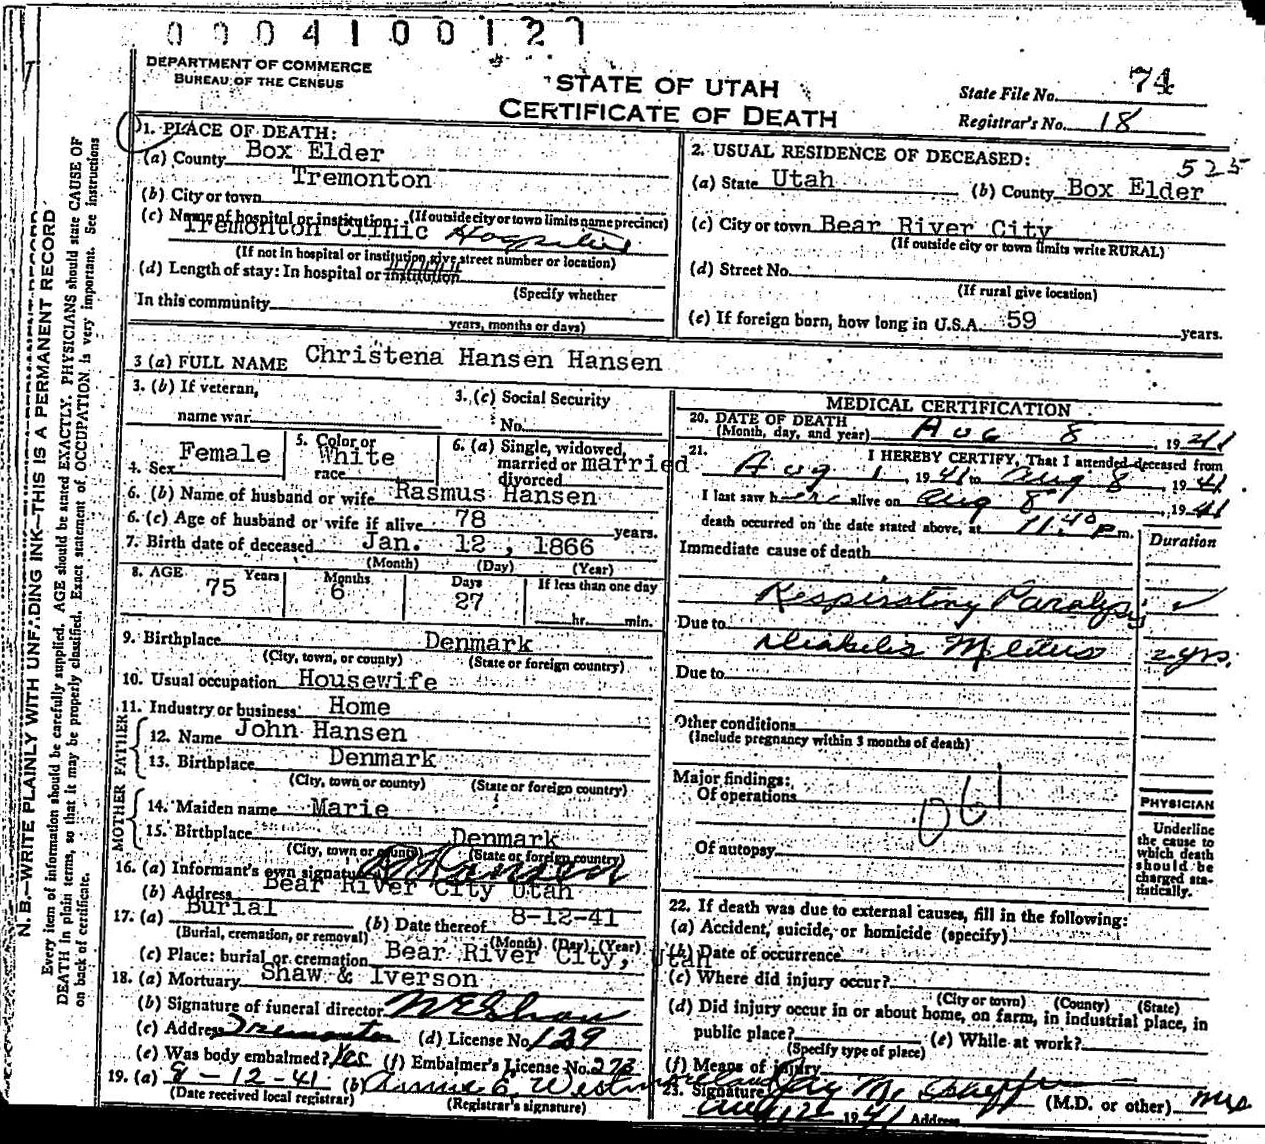 0004100127
DEPARTMENT OF COMMERCE
BUREAU OF THE CENSUS
STATE OF UTAH
CERTIFICATE OF DEATH
State File No. 74
Registrar's No. 18
1. PLACE OF DEATH:
(a) County Box Elder
(b) City or town Tremonton
(If outside city or town limits name precinct)
(c) Name of hospital or institution:
Tremonton Clinic Hospital
(If not in hospital or institution give street number or location)
(d) Length of stay: In hospital or institution
(Specify whether
In this community
years, months or days)
2. USUAL RESIDENCE OF DECEASED:
525
(a) State Utah (b) County Box Elder
(c) City or town Bear River City
(If outside city or town limits write RURAL)
(d) Street No.
(If rural give location)
(e) If foreign born, how long in U.S.A. 59 years.
3 (a) FULL NAME Christena Hansen Hansen
3. (b) If veteran,
name war
3. (c) Social Security
No.
4. Sex Female
5. Color or
race White
6. (a) Single, widowed,
married or married
divorced
6. (b) Name of husband or wife Rasmus Hansen
6. (c) Age of husband or wife if alive 78 years.
7. Birth date of deceased Jan. 12, 1866
(Month) (Day) (Year)
8. AGE Years Months Days If less than one day
75 6 27
hr. min.
9. Birthplace Denmark
(City, town, or county) (State or foreign country)
10. Usual occupation Housewife
11. Industry or business Home
FATHER
12. Name John Hansen
13. Birthplace Denmark
(City, town or county) (State or foreign country)
MOTHER
14. Maiden name Marie
15. Birthplace Denmark
(City, town or county) (State or foreign country)
16. (a) Informant's own signature Hansen
(b) Address Bear River City Utah
17. (a) Burial (b) Date thereof 8-12-41
(Burial, cremation, or removal) (Month) (Day) (Year)
(c) Place: burial or cremation Bear River City, Utah
18. (a) Mortuary Shaw & Iverson
(b) Signature of funeral director W E Shaw
(c) Address Tremonton (d) License No. 129
(e) Was body embalmed? Yes (f) Embalmer's License No. 273
19. (a) 8-12-41 (b)
(Date received local registrar) (Registrar's signature)
MEDICAL CERTIFICATION
20. DATE OF DEATH
(Month, day, and year) Aug 8, 1941
21. I HEREBY CERTIFY, That I attended deceased from
Aug 1, 1941 to Aug 8 1941
I last saw her alive on Aug 8, 1941
death occurred on the date stated above, at 11:40 P m.
Duration
Immediate cause of death
Respiratory Paralysis
Due to
Diabetis Melitus 2 yrs.
Due to
Other conditions
(Include pregnancy within 3 months of death)
Major findings:
Of operations
061
Of autopsy
PHYSICIAN
Underline
the cause to
which death
should be
charged sta-
tistically.
22. If death was due to external causes, fill in the following:
(a) Accident, suicide, or homicide (specify)
(b) Date of occurrence
(c) Where did injury occur?
(City or town) (County) (State)
(d) Did injury occur in or about home, on farm, in industrial place, in
public place? (e) While at work?
(Specify type of place)
(f) Means of injury
23. Signature Jay M. (M.D. or other)
Aug 12 1941 Address
N. B.—WRITE PLAINLY WITH UNFADING INK—THIS IS A PERMANENT RECORD
Every item of information should be carefully supplied. AGE should be stated EXACTLY. PHYSICIANS should state CAUSE OF
DEATH in plain terms, so that it may be properly classified. Exact statement of OCCUPATION is very important. See instructions
on back of certificate.